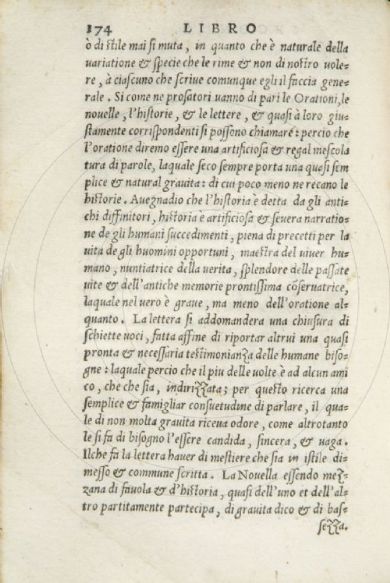 174 LIBRO
ò di stile mai si muta, in quanto che è naturale della
uariatione & specie che le rime & non di nostro uole-
re, à ciascuno che scriue comunque egli il faccia gene-
rale. Si come ne prosatori uanno di pari le Orationi, le
nouelle, l'historie, & le lettere, & quasi à loro giu-
stamente corrispondenti si possono chiamare: percio che
l'oratione diremo essere una artificiosa & regal mescola
tura di parole, laquale seco sempre porta una quasi sem
plice & natural grauita: di cui poco meno ne recano le
historie. Auegnadio che l'historia è detta da gli anti-
chi diffinitori, historia è artificiosa & seuera narratio-
ne de gli humani succedimenti, piena di precetti per la
uita de gli huomini opportuni, maestra del uiuer hu-
mano, nuntiatrice della uerita, splendore delle passate
uite & dell'antiche memorie prontissima cōseruatrice,
laquale nel uero è graue, ma meno dell'oratione al-
quanto. La lettera si addomandera una chiusura di
schiette uoci, fatta affine di riportar altrui una quasi
pronta & necessaria testimonianza delle humane biso-
gne: laquale percio che il piu delle uolte è ad alcun ami
co, che che sia, indirizzata; per questo ricerca una
semplice & famigliar consuetudine di parlare, il qua-
le di non molta grauita riceua odore, come altrotanto
le si fa di bisogno l'essere candida, sincera, & uaga.
Ilche fa la lettera hauer di mestiere che sia in istile di-
messo & commune scritta. La Nouella essendo mez-
zana di fauola & d'historia, quasi dell'uno et dell'al-
tro partitamente partecipa, di grauita dico & di bas-
sezza.